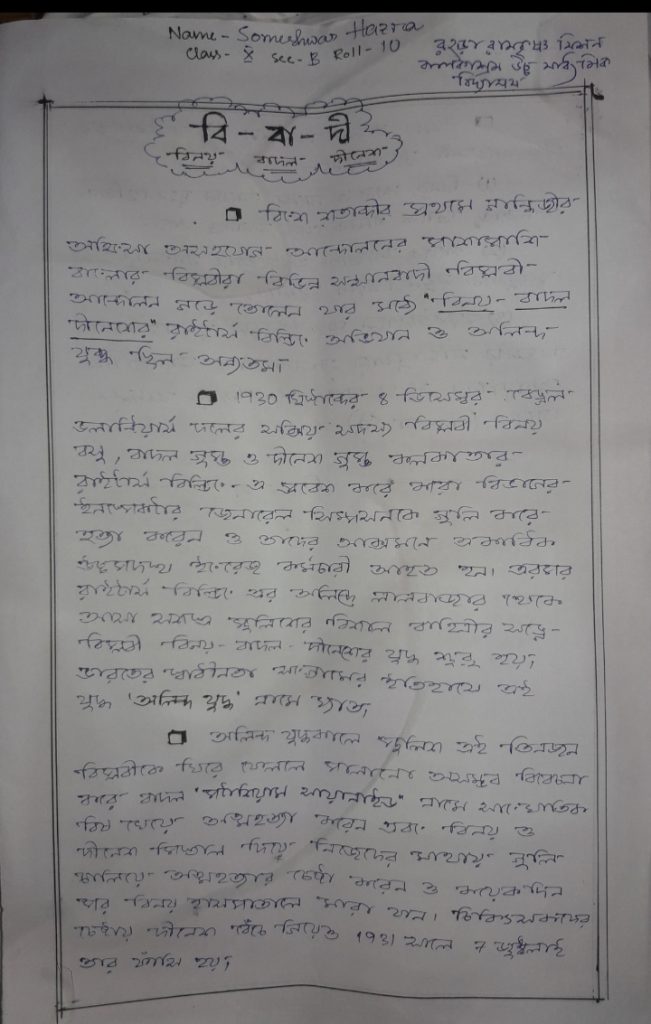 Name- Someshwar Hazra
Class- X Sec- B Roll- 10
রহড়া রামকৃষ্ণ মিশন
বালকাশ্রম উচ্চ মাধ্যমিক
বিদ্যালয়
বি - বা - দী
বিনয় বাদল দীনেশ
বিংশ শতাব্দীর প্রথমে গান্ধিজীর
অহিংসা অসহযোগ আন্দোলনের পাশাপাশি
বাংলার বিপ্লবীরা বিভিন্ন সন্ত্রাসবাদী বিপ্লবী
আন্দোলন গড়ে তোলেন যার মধ্যে "বিনয়- বাদল
দীনেশের" রাইটার্স বিল্ডিং অভিযান ও অলিন্দ
যুদ্ধ ছিল অন্যতম।
1930 খ্রিষ্টাব্দের 8 ডিসেম্বর বেঙ্গল
ভলান্টিয়ার্স দলের সক্রিয় সদস্য বিপ্লবী বিনয়
বসু, বাদল গুপ্ত ও দীনেশ গুপ্ত কলকাতার
রাইটার্স বিল্ডিং এ প্রবেশ করে কারা বিভাগের
ইনস্পেক্টার জেনারেল সিম্পসনকে গুলি করে
হত্যা করেন ও তাদের আক্রমনে একাধিক
উচ্চপদস্থ ইংরেজ কর্মচারী আহত হন। এরপর
রাইটার্স বিল্ডিং এর অলিন্দে লালবাজার থেকে
আসা সশস্ত্র পুলিশের বিশাল বাহিনীর সঙ্গে
বিপ্লবী বিনয়- বাদল- দীনেশের যুদ্ধ শুরু হয়,
ভারতের স্বাধীনতা সংগ্রামের ইতিহাসে এই
যুদ্ধ 'অলিন্দ যুদ্ধ' নামে খ্যাত,
অলিন্দ যুদ্ধকালে পুলিশ এই তিনজন
বিপ্লবীকে ঘিরে ফেললে পালানো অসম্ভব বিবেচনা
করে বাদল "পটাশিয়াম সায়ানাইড" নামে সাংঘাতিক
বিষ খেয়ে আত্মহত্যা করেন এবং বিনয় ও
দীনেশ পিস্তল দিয়ে নিজেদের মাথায় গুলি
চালিয়ে আত্মহত্যার চেষ্টা করেন ও কয়েকদিন
পর বিনয় হাসপাতালে মারা যান। চিকিৎসকদের
চেষ্টায় দীনেশ বেঁচে গিয়েও 1931 সালে 7 জুলাই
তার ফাঁসি হয়,